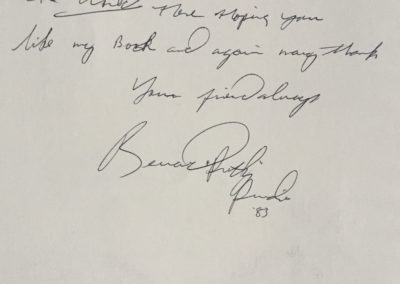 Here Hoping you
like my Book and again many thank
Your friend always
Bernard Pretty
Purdie
'83